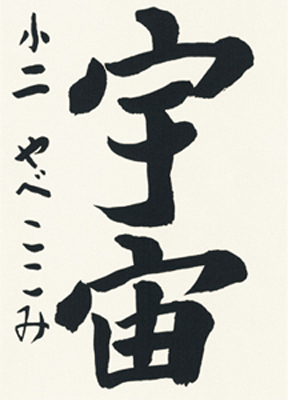 宇宙
小二 やべ ここみ